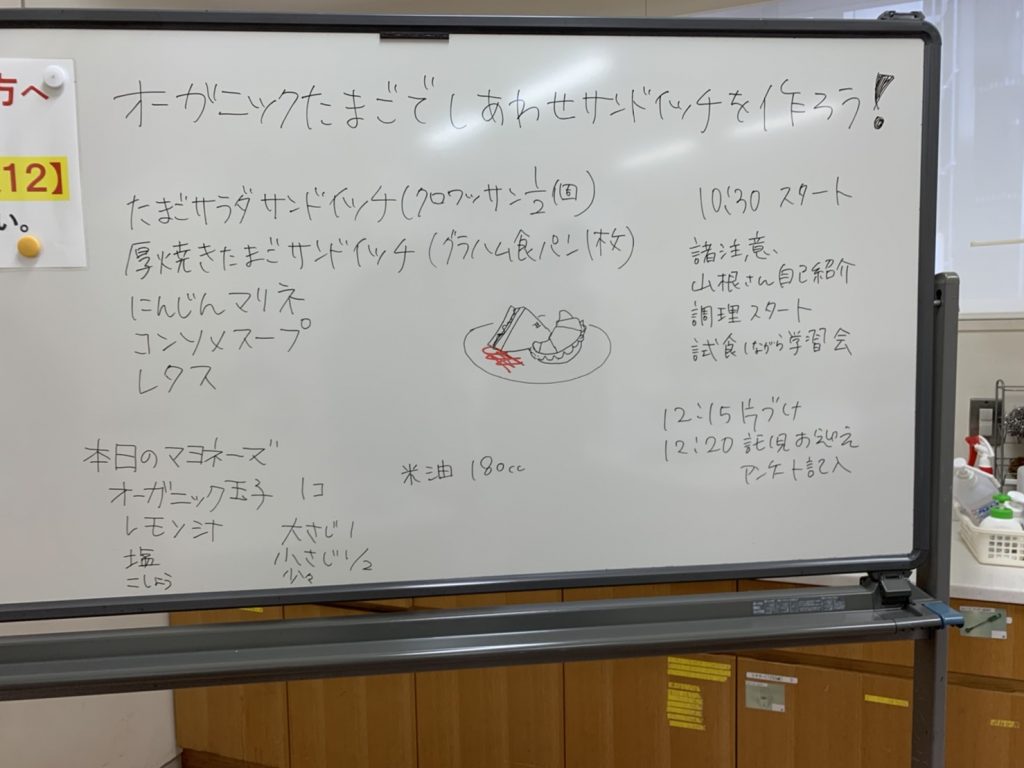 方へ
12】
い。
オーガニックたまごでしあわせサンドイッチを作ろう!
たまごサラダサンドイッチ(クロワッサン1/2個)
厚焼きたまごサンドイッチ(グラハム食パン1枚)
にんじんマリネ
コンソメスープ
レタス
10:30 スタート
諸注意、
山根さん自己紹介
調理スタート
試食しながら学習会
12:15 片づけ
12:20 託児お迎え
アンケート記入
本日のマヨネーズ
オーガニック玉子 1コ
レモン汁 大さじ1
塩 小さじ1/2
こしょう 少々
米油 180cc